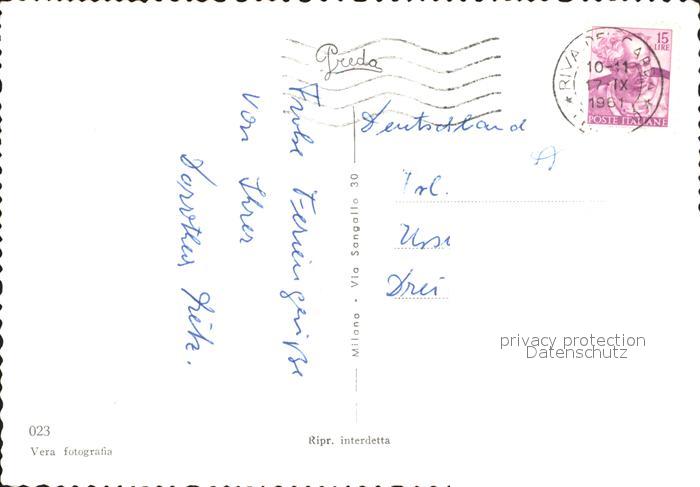 Preda
15
LIRE
RIVA DEL GARDA
10-11
17-IX
1961
POSTE ITALIANE
Deutschland
Frl.
Drei
Frohe Feriengrüße
von Ihrer
Dorothea
Milano - Via Sangallo 30
privacy protection
Datenschutz
023
Vera fotografia
Ripr. interdetta